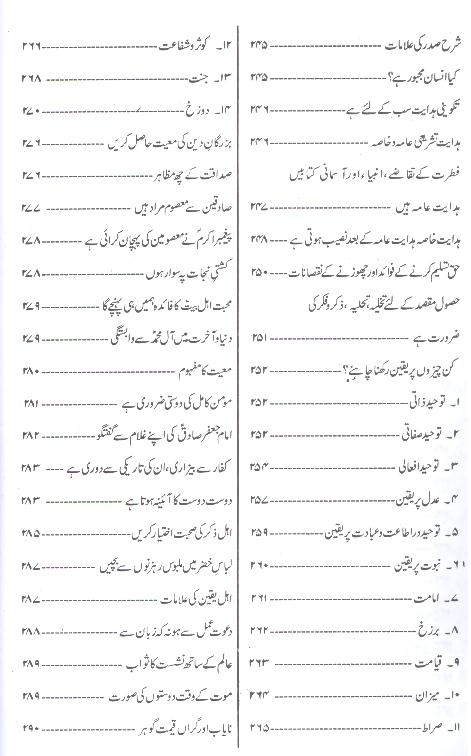 شرح صدر کی علامات ------------ ۲۴۵
کیا انسان مجبور ہے؟ ------------ ۲۴۵
تکوینی ہدایت سب کے لئے ہے ------------ ۲۴۶
ہدایت تشریعی عامہ و خاصہ ------------ ۲۴۶
فطرت کے تقاضے، انبیاء، اور آسمانی کتابیں
ہدایت عامہ ہیں ------------ ۲۴۷
ہدایت خاصہ ہدایت عامہ کے بعد نصیب ہوتی ہے ---- ۲۴۸
حق تسلیم کرنے کے فوائد اور چھوڑنے کے نقصانات ---- ۲۵۰
حصول مقصد کے لئے تخلیہ، تحلیہ، ذکر و فکر کی
ضرورت ہے ------------ ۲۵۱
کن چیزوں پر یقین رکھنا چاہئے؟ ------------ ۲۵۲
۱۔ توحید ذاتی ------------ ۲۵۲
۲۔ توحید صفاتی ------------ ۲۵۲
۳۔ توحید افعالی ------------ ۲۵۴
۴۔ عدل پر یقین ------------ ۲۵۷
۵۔ توحید در اطاعت و عبادت پر یقین ------ ۲۵۹
۶۱۔ نبوت پر یقین ------------ ۲۶۰
۷۔ امامت ------------ ۲۶۱
۸۔ برزخ ------------ ۲۶۲
۹۔ قیامت ------------ ۲۶۳
۱۰۔ میزان ------------ ۲۶۴
۱۱۔ صراط ------------ ۲۶۵
۱۲۔ کوثر و شفاعت ------------ ۲۶۶
۱۳۔ جنت ------------ ۲۶۸
۱۴۔ دوزخ ------------ ۲۷۰
بزرگان دین کی معیت حاصل کریں ------------ ۲۷۶
صداقت کے چھ مظاہر ------------ ۲۷۶
صادقین سے معصوم مراد ہیں ------------ ۲۷۷
پیغمبر اکرمؐ نے معصومین کی پہچان کرائی ہے ------ ۲۷۸
کشتی نجات پہ سوار ہوں ------------ ۲۷۸
محبت اہل بیتؑ کا فائدہ ہمیں ہی پہنچے گا ------ ۲۷۹
دنیا و آخرت میں آل محمدؐ سے وابستگی ------ ۲۷۹
معیت کا مفہوم ------------ ۲۸۰
مؤمن کامل کی دوستی ضروری ہے ------------ ۲۸۱
امام جعفر صادقؑ کی اپنے غلام سے گفتگو ------ ۲۸۲
کفار سے بیزاری، ان کی تاریکی سے دوری ہے ---- ۲۸۳
دوست دوست کا آئینہ ہوتا ہے ------------ ۲۸۳
اہل ذکر کی صحبت اختیار کریں ------------ ۲۸۵
لباس خضر میں ملبوس رہزنوں سے بچیں ------ ۲۸۷
اہل یقین کی علامات ------------ ۲۸۷
دعوت عمل سے ہو نہ کہ زبان سے ------------ ۲۸۸
عالم کے ساتھ نشست کا ثواب ------------ ۲۸۹
موت کے وقت دوستوں کی صورت ------------ ۲۸۹
نایاب اور گراں قیمت گوہر ------------ ۲۹۰